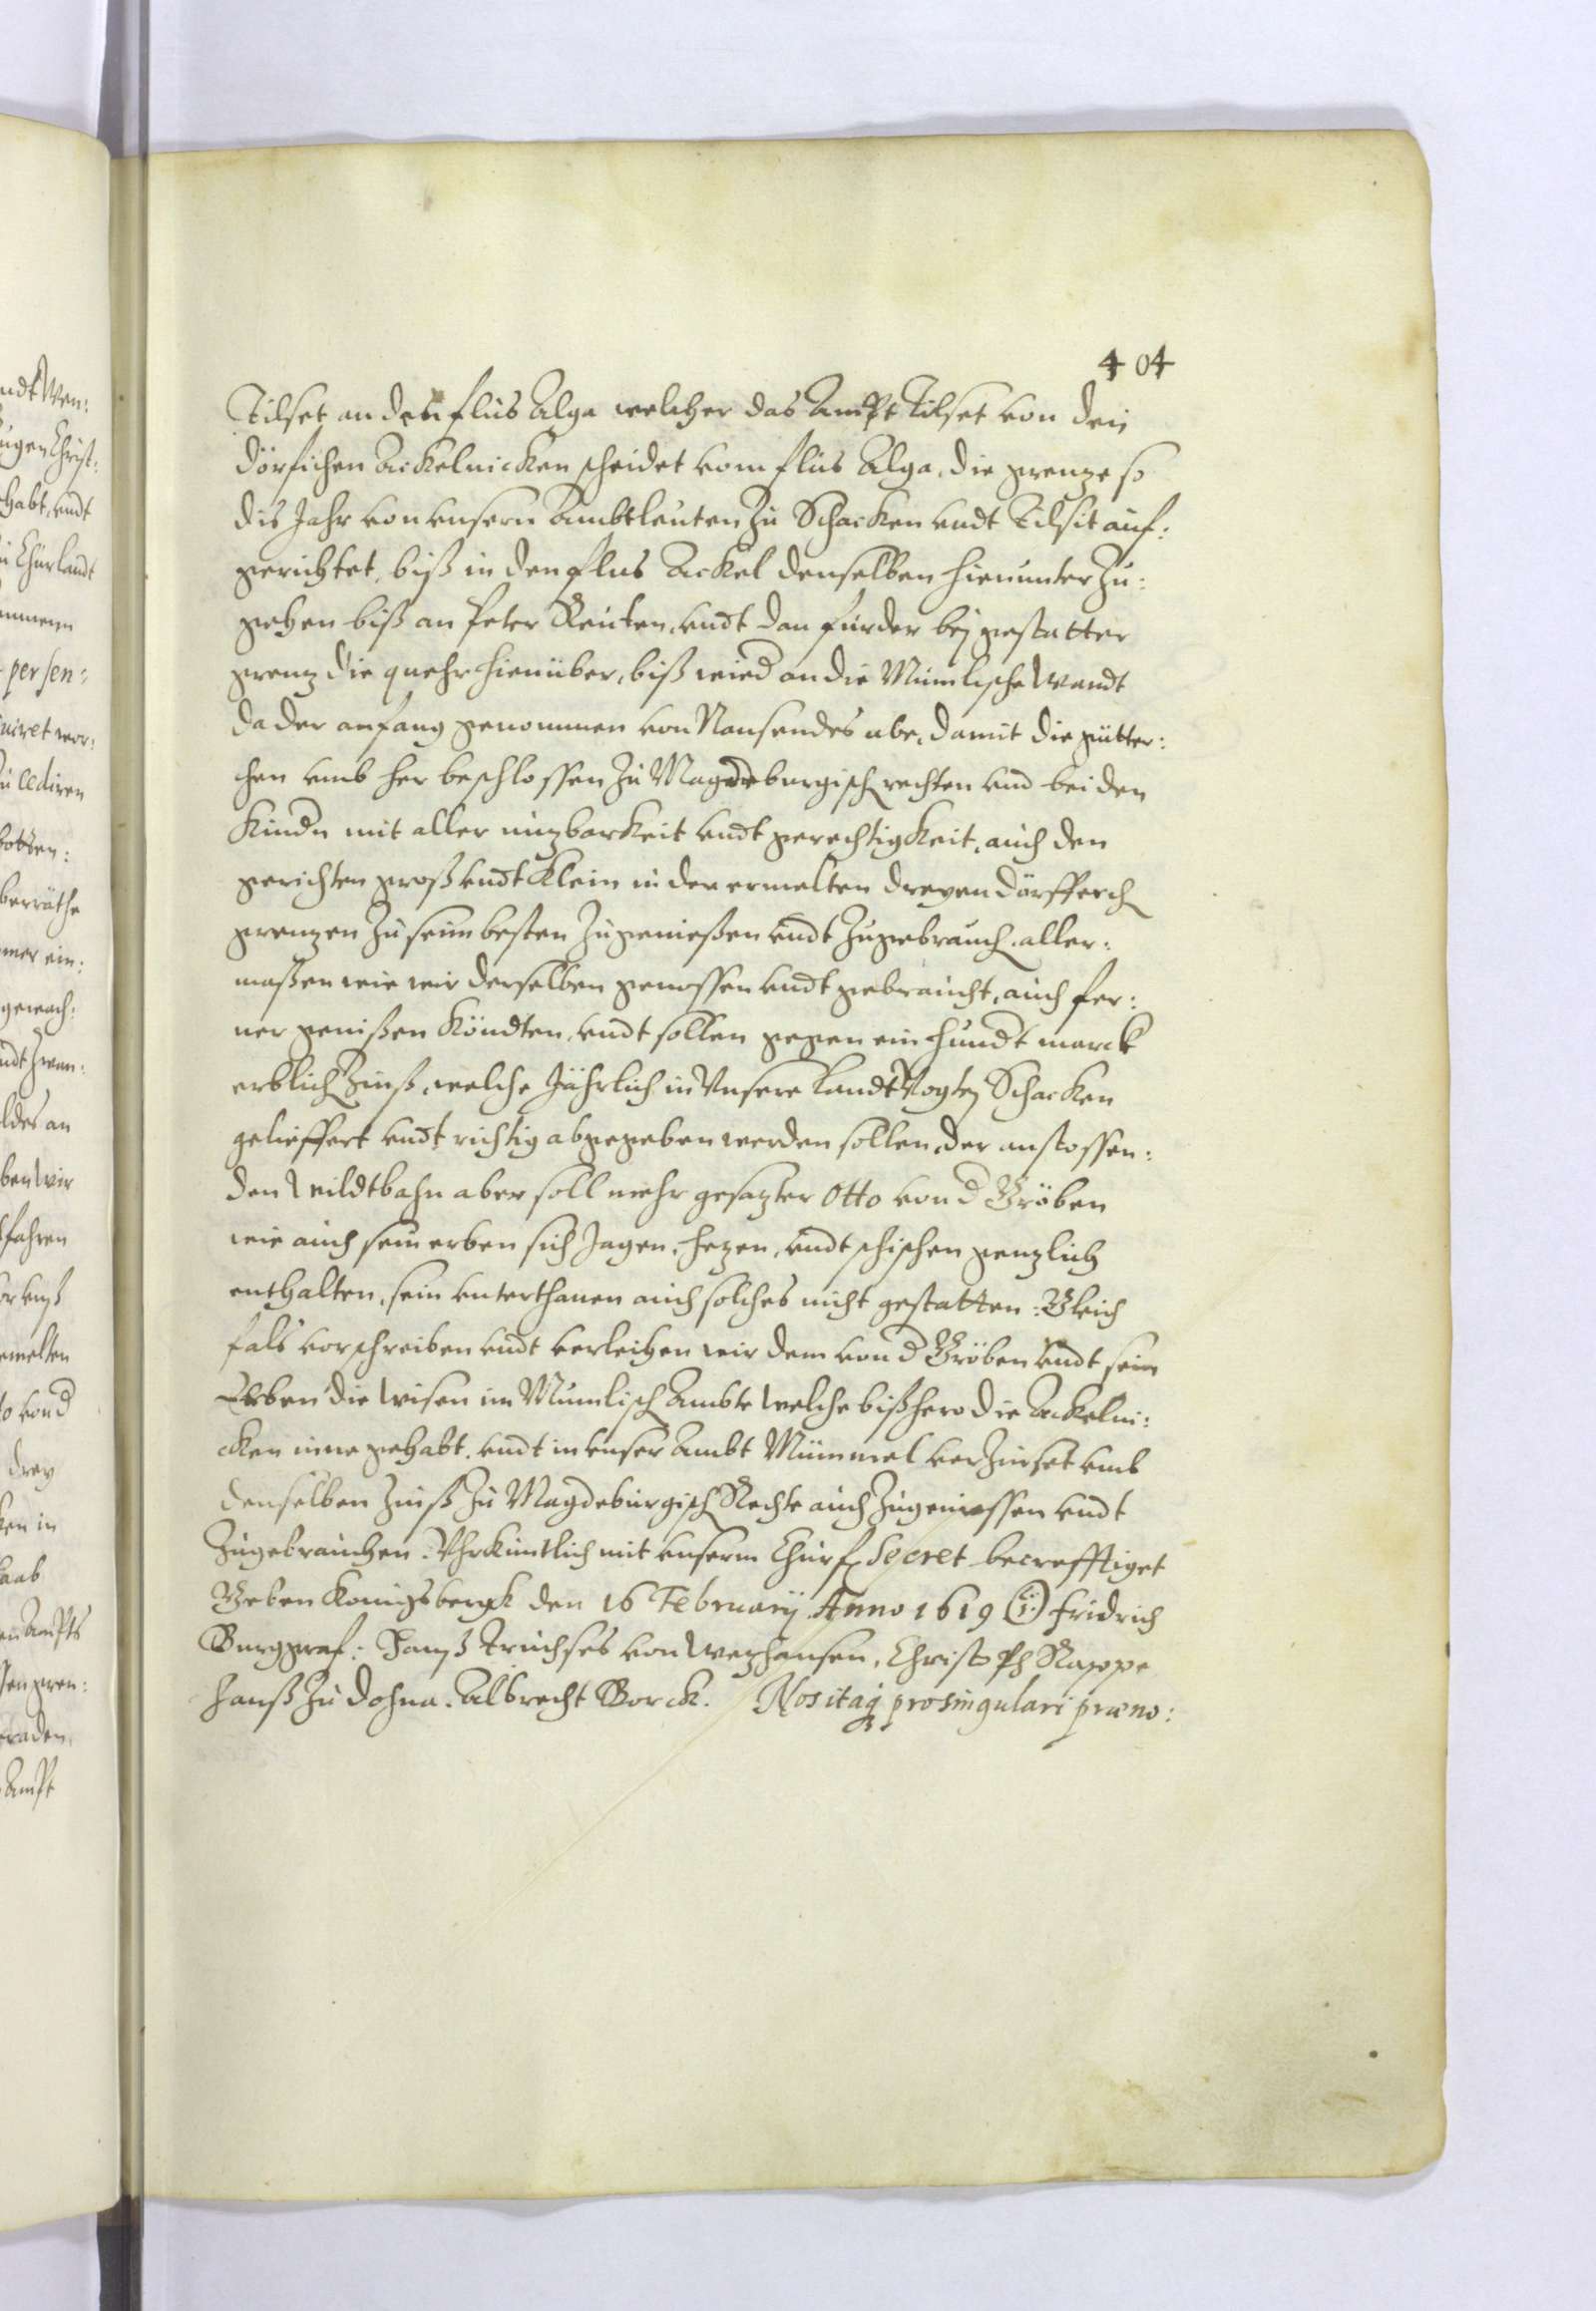 404
Tilset an den flus Alga welcher das Ampt Tilset von den
dörfichen Ackelnicken scheidet vom flus Alga, die grenze so
dis Jahr von unsern Ambtleuten zu Schacken undt Tilsit auf:
gerichtet, biß in den flus Ackel denselben hienunter zu:
gehen biß an Peter Reuten, undt dan fürder bej gestatter
grenz die quehr hienüber, biß wied an die Mümlische Wandt
da der anfang genommen von Nausendes abe, damit die gütter:
chen umb her beschlossen zu Magdeburgisch rechten und beiden
Kindn mit aller nuzbarkeit undt gerechtigkeit, auch den
gerichten groß undt Klein in den ermelten dreyen dörfferch
grenzen zu seim besten zugenießen undt zugebrauch. aller:
maßen wie wir derselben genossen undt gebraucht, auch fer:
ner genißen Köndten, undt sollen gegen ein hundt marck
erblich Zinß, welche Jährlich in Unsere Landt Vogtej Schacken
gelieffert undt richtig abgegeben werden sollen, der anstossen:
den Wildtbahn aber soll mehr gesazter Otto von d Gröben
wie auch sein erben sich Jagen, hezen, undt schischen genzlich
enthalten, sein unterthanen auch solches nicht gestatten: Gleich
fals vorschreiben undt verleihen wir dem von d Gröben undt sein
Erben die Wisen im Mümlisch Ambte welche bißhero die Ackelni:
cken inne gehabt. undt in unser Ambt Mümmel verzinset umb
denselben Zinß zu Magdeburgisch Rechte auch zugeniessen undt
zugebrauchen. Uhrkuntlich mit unserm Churf Secret becrefftiget
Geben Konigsbergk den 16 Februarij Anno 1619 fridrich
Burggraf: Hanß Truchses von Wezhausen, Christoph Rappe
Hanß zu Dohna. Albrecht Borck. Nos itaq pro singulari præno: